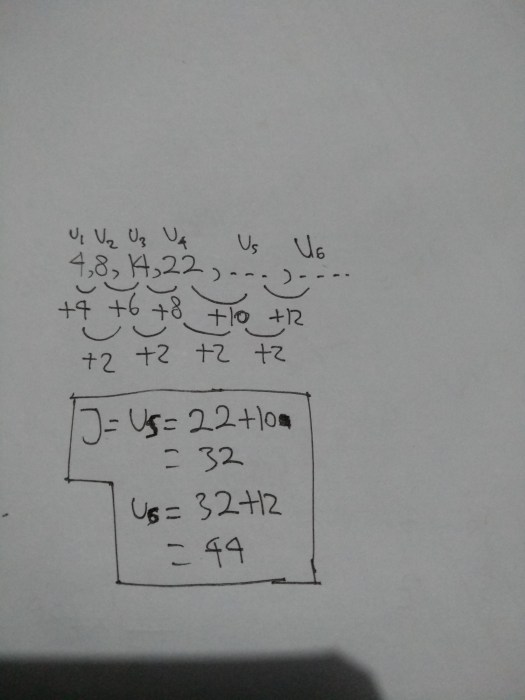 U1 U2 U3 U4 U5 U6
4,8, 14,22, ...., ....
+4 +6 +8 +10 +12
+2 +2 +2 +2
J= U5= 22+10
= 32
U6= 32+12
= 44